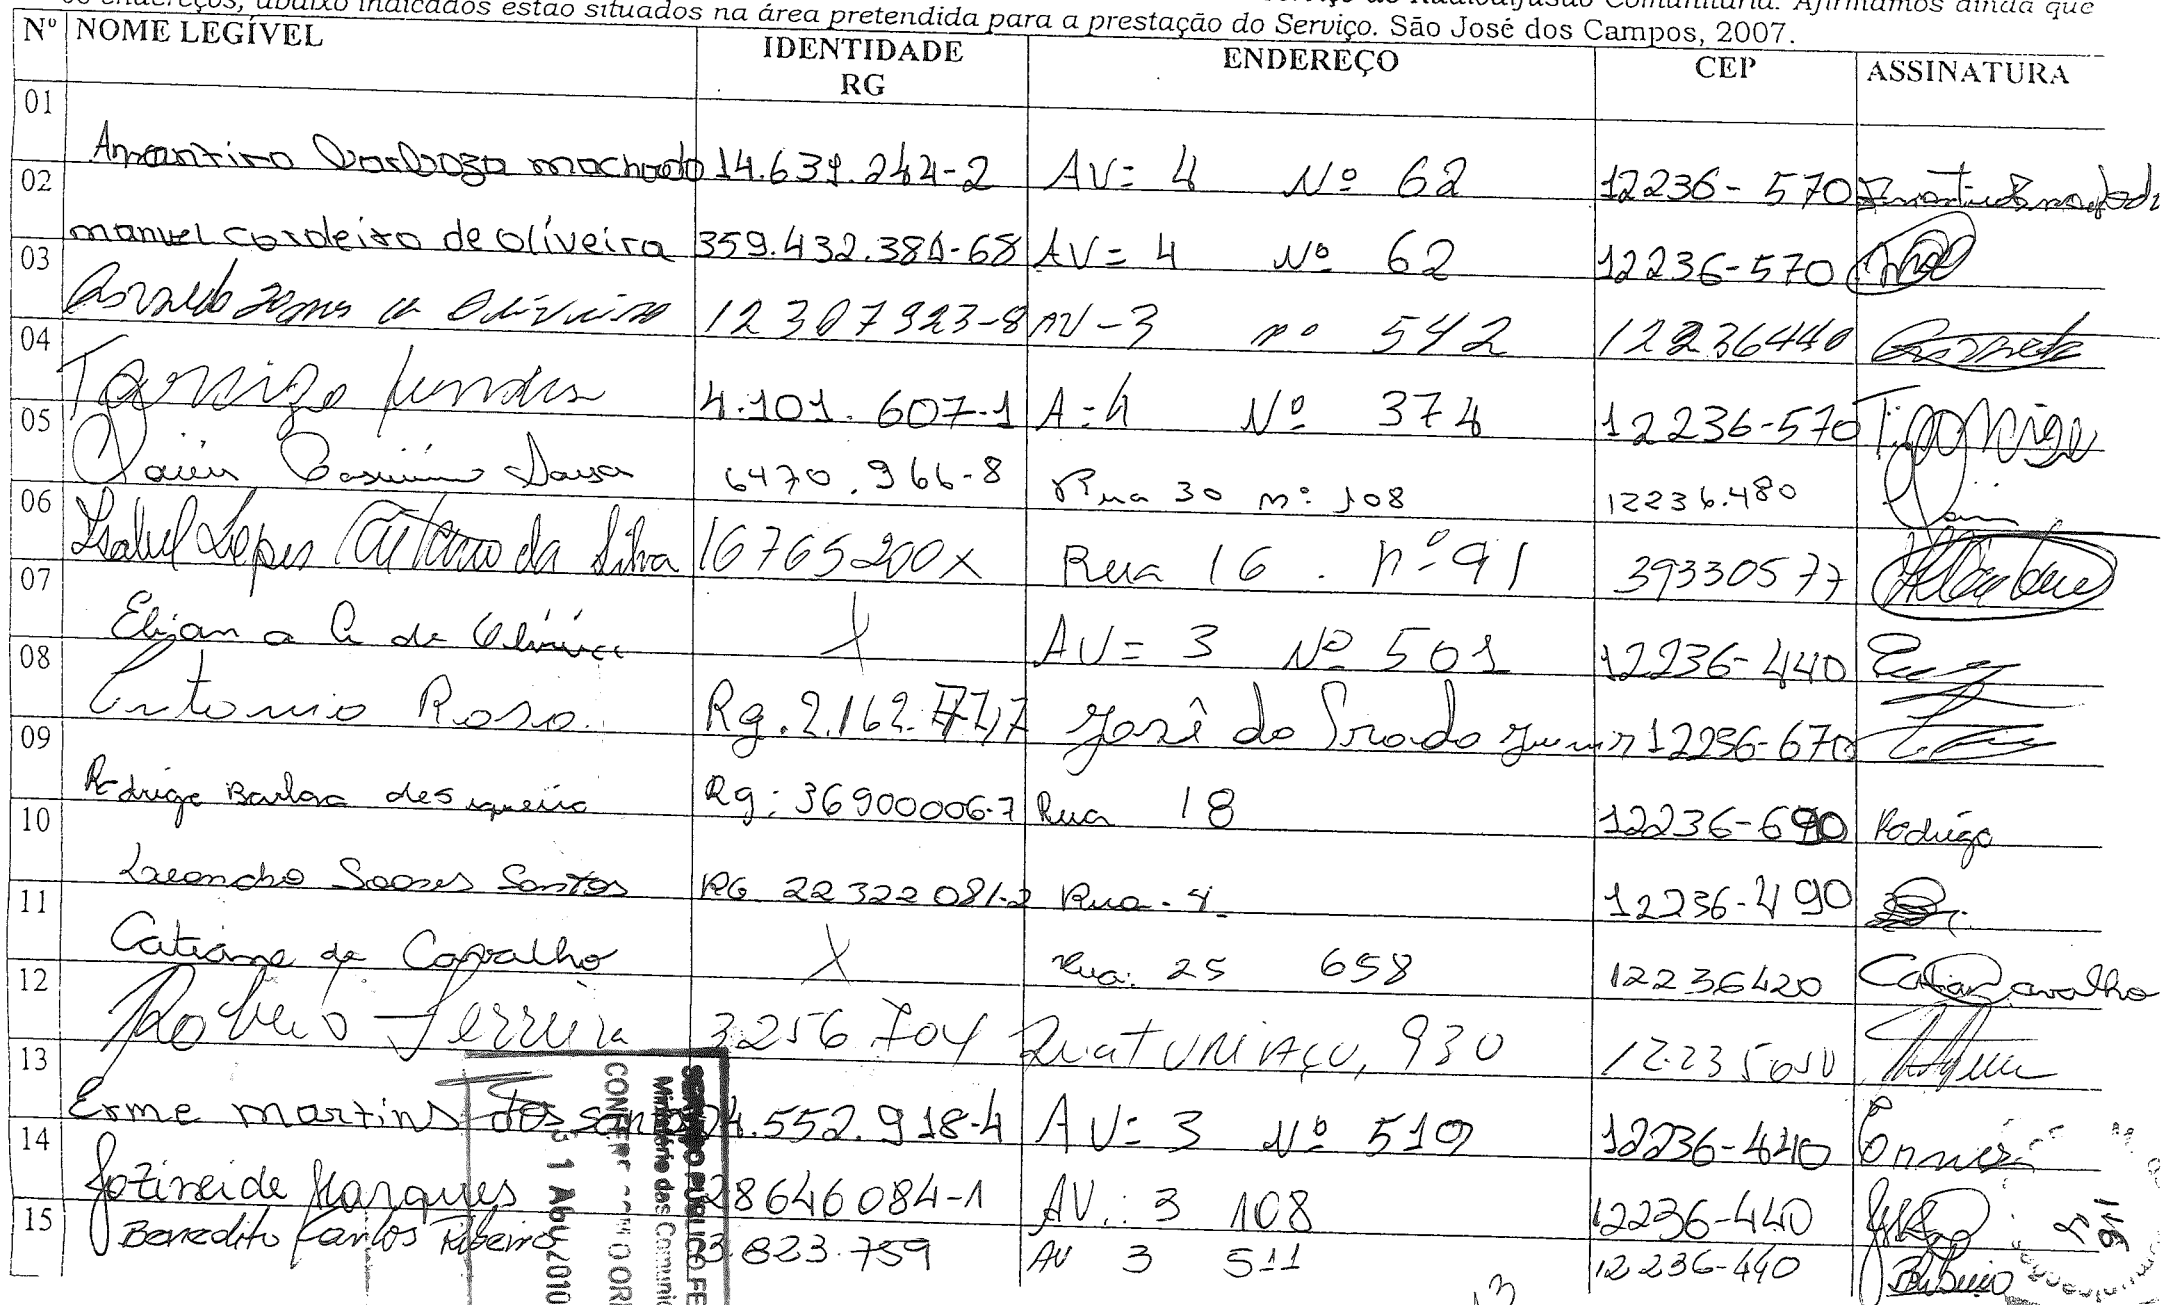 os endereços, abaixo indicados estão situados na área pretendida para a prestação do Serviço de Radiodifusão Comunitária. Afirmamos ainda que
São José dos Campos, 2007.
Nº NOME LEGÍVEL IDENTIDADE RG ENDEREÇO CEP ASSINATURA
01 machado 14.631.244-2 AV= 4 Nº 62 12236-570
02 manuel cordeiro de oliveira 359.432.381-68 AV= 4 Nº 62 12236-570
03 12307323-8 AV-3 nº 542 12236440
04 4.101.607-1 A=4 Nº 374 12236-570
05 Sousa 6470.966-8 Rua 30 nº 108 12236.480
06 Isabel Lopes Caetano da Silva 16765200X Rua 16 . nº 91 39330577
07 Elijan a de X AV= 3 Nº 501 12236-440
08 Antonio Roso Rg.2.162. José do Prado Junior 12236-670
09 Rodrigo Barbosa de Siqueira Rg: 36900006-7 Rua 18 12236-690 Rodrigo
10 Leandro Soares Santos RG 22322081-2 Rua - 4 12236-490
11 Catiane de Carvalho X Rua: 25 658 12236420 Carvalho
12 Roberio Ferreira 3256704 930
13 Erme martins dos santos 24.552.918-4 AV= 3 Nº 519 12236-440
14 Jozineide Marques 28646084-1 AV.: 3 108 12236-440
15 Benedito Carlos Ribeiro 3.823.759 AV 3 511 12236-440 Ribeiro
SERVIÇO PÚBLICO FE
Ministério das Comunic
CONFERE COM O ORI
1 Abr 2010
146
13